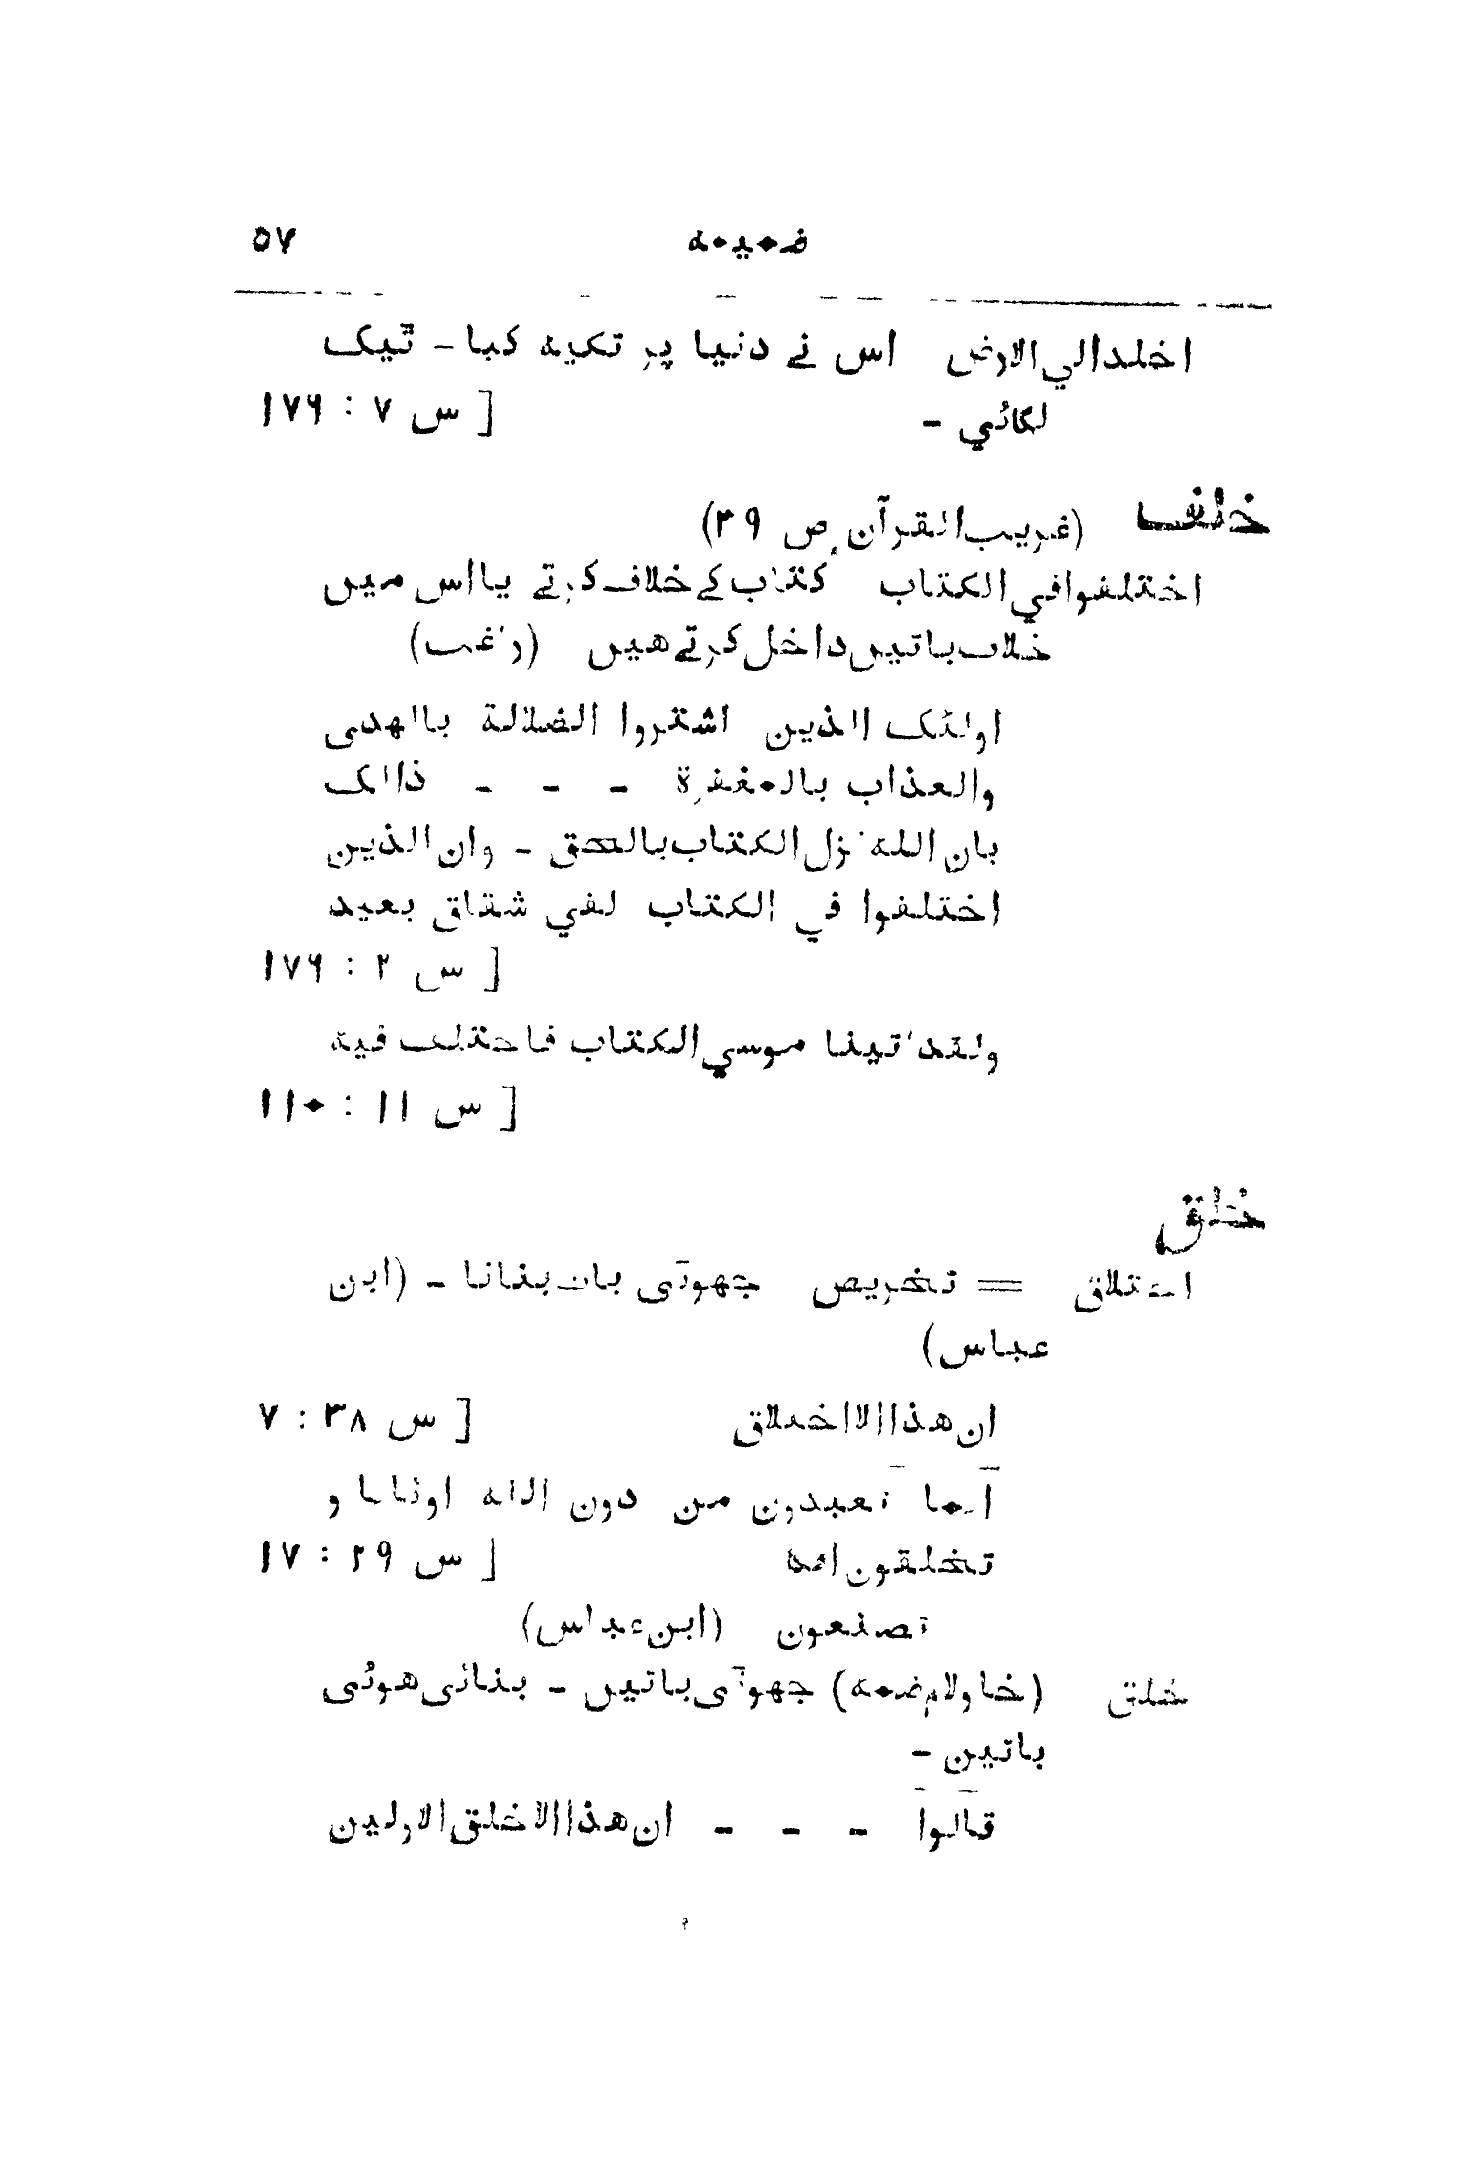 ضمیمه ۵۷
اخلدالي الارض اس نے دنیا پر تکیه کیا - ٹیک
لگائي - [ س ۷ : ۱۷۶
خلف (غریب القرآن ص ۳۹)
اختلفوا في الکتاب کتاب کے خلاف کرتے یا اس میں
خلاف باتیں داخل کرتے هیں (راغب)
اولئک الذین اشتروا الضلالة بالهدی
والعذاب بالمغفرة - - - ذالک
بان الله نزل الکتاب بالحق - وان الذین
اختلفوا في الکتاب لفي شقاق بعید
[ س ۲ : ۱۷۶
ولقد اتینا موسي الکتاب فاختلف فیه
[ س ۱۱ : ۱۱۰
خلق
اختلاق = تخریص جهوٹی بات بنانا - (ابن
عباس)
ان هذا الا اختلاق [ س ۳۸ : ۷
انما تعبدون من دون الله اوثانا و
تخلقون افکا [ س ۲۹ : ۱۷
تصنعون (ابن عباس)
خلق (خا و لام ضمه) جهوٹی باتیں - بنائی هوئی
باتین -
قالوا - - - ان هذا الا خلق الاولین